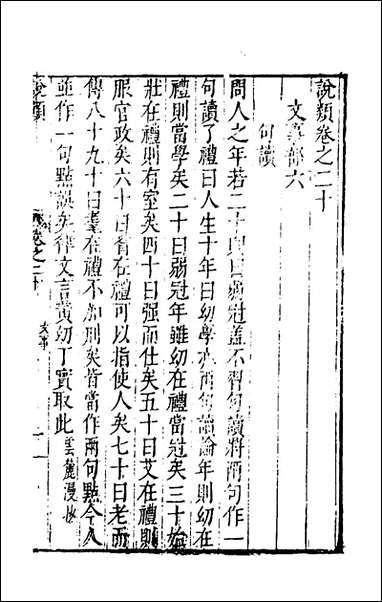 說類卷之二十
文事部六
句讀
問人之年若二十與曰弱冠蓋不習句讀將兩句作一
句讀了禮曰人生十年曰幼學六兩句讀論年則幼在
禮則當學矣二十曰弱冠年雖幼在禮當冠矣三十始
壯在禮則有室矣四十曰强而仕矣五十曰艾在禮則
服官政矣六十曰耆在禮可以指使人矣七十曰老而
傳八十九十曰耄在禮不加刑矣皆當作兩句點今人
並作一句點誤矣律文言黃幼丁實取此 雲麓漫抄
說類
卷之二十
文事
一